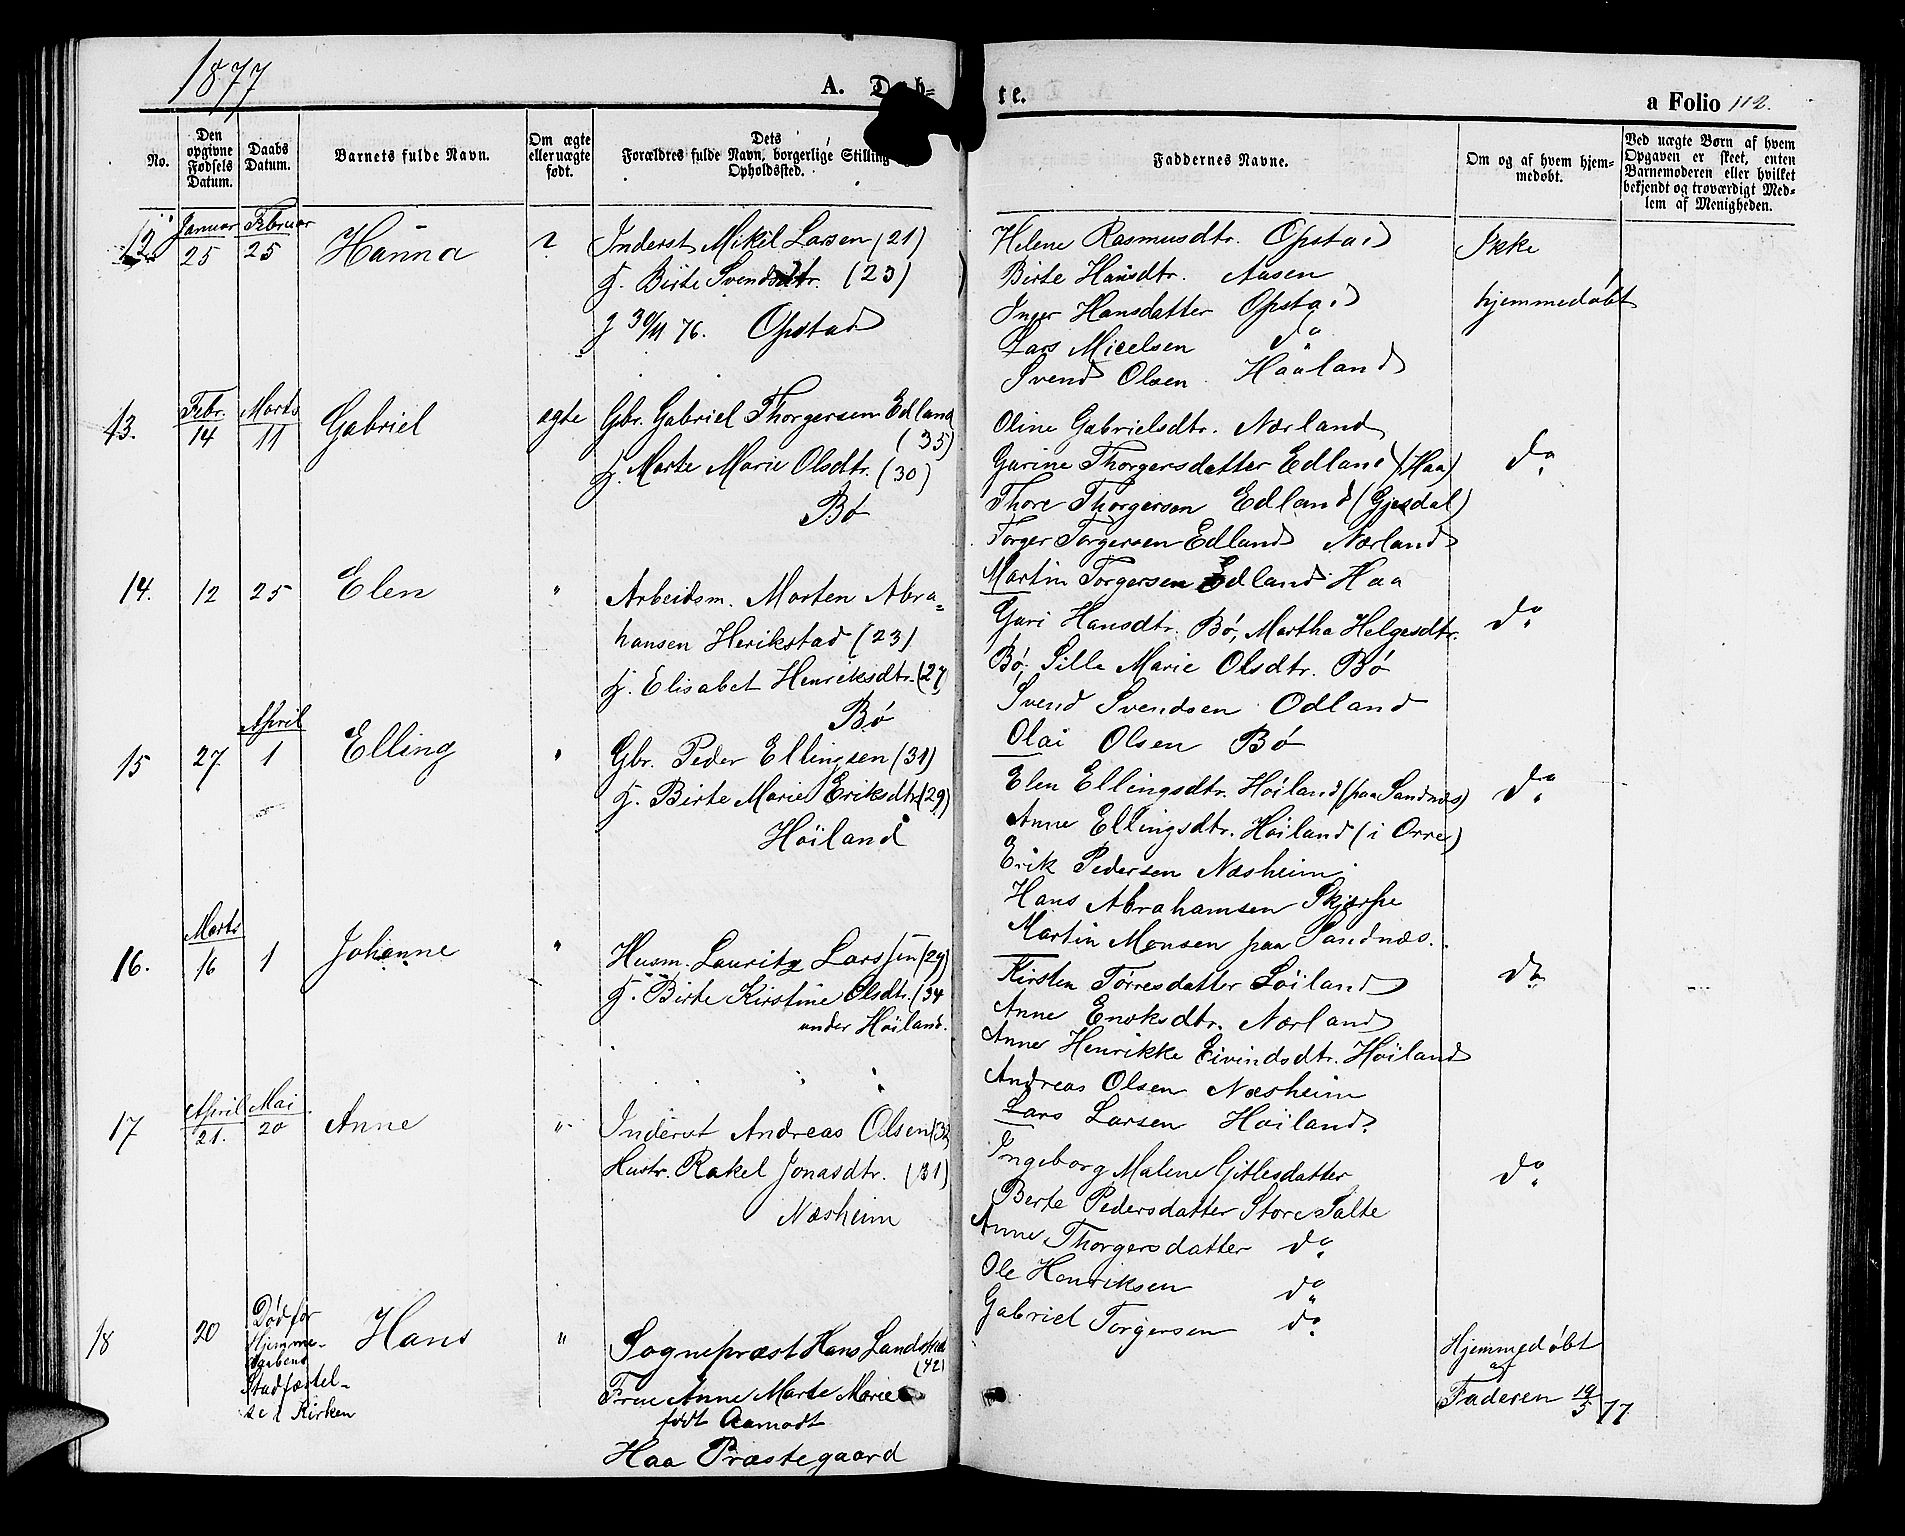 1877
A. Døb=
te.
a Folio 112.
No.
Den opgivne Fødsels Datum.
Daabs Datum.
Barnets fulde Navn.
Om ægte eller uægte født.
Dets Forældres fulde Navn, borgerlige Stilling
Opholdssted.
Faddernes Navne.
Om og af hvem hjem-
medøbt.
Ved uægte Børn af hvem
Opgaven er skeet, enten
Barnemoderen eller hvilket
bekjendt og troværdigt Med-
lem af Menigheden.
12
Januar
25
Februar
25
Hanna
?
Inderst Mikel Larsen (21)
H. Birte Svendsdtr. (23)
g 30/11 76. Opstad
Helene Rasmusdtr. Opstad
Birte Hansdtr. Aasen
Inger Hansdatter Opstad
Lars Micelsen do
Svend Olsen Haaland
Ikke
hjemmedøbt
13.
Febr.
14
Marts
11
Gabriel
ægte
Gbr. Gabriel Thorgersen Edland
(35)
H. Marte Marie Olsdtr. (30)
Bø
Oline Gabrielsdtr. Nærland
Gurine Thorgersdatter Edland (Haa)
Thore Thorgersen Edland (Gjesdal)
Torger Torgersen Edland Nærland
Martin Torgersen Edland Haa
do
14.
12
25
Elen
"
Arbeidsm. Morten Abra=
hansen Herikstad (23)
H. Elisabet Henriksdtr. (27
Bø
Guri Hansdtr. Bø, Martha Helgesdtr.
Bø, Sille Marie Olsdtr. Bø
Svend Svendsen Odland
Olai Olsen Bø
do
15
27
April
1
Elling
"
Gbr. Peder Ellingsen (31)
H. Birte Marie Eriksdtr. (29)
Høiland
Elen Ellingsdtr. Høiland (paa Sandnæs)
Anne Ellingsdtr. Høiland (i Orre)
Erik Pedersen Næsheim
Hans Abrahamsen Skjærpe
Martin Monsen paa Sandnæs.
do
16.
Marts
16
1
Johanne
"
Husm. Lauritz Larssen (29)
H. Birte Kirstine Olsdtr. (34
under Høiland.
Kirsten Tørresdatter Løiland
Anne Enoksdtr. Nærland
Anne Henrikke Eivindsdtr. Høiland
Andreas Olsen Næsheim
Lars Larsen Høiland.
do
17
April
21.
Mai
20
Anne
"
Inderst Andreas Olsen (32
Hustr. Rakel Jonasdtr. (31)
Næsheim
Ingeborg Malene Gitlesdatter
Berte Pedersdatter Store Salte
Anne Thorgersdatter do
Ole Henriksen do
Gabriel Torgersen do
do
18
20
Død før
Hjemme-
daabens
Stadfæstel-
se i Kirken
Hans
"
Sognepræst Hans Landstad
(42)
Frue Anne Marte Marie
født Aamodt
Haa Præstegaard
Hjemmedøbt
af
Faderen 19/5 77